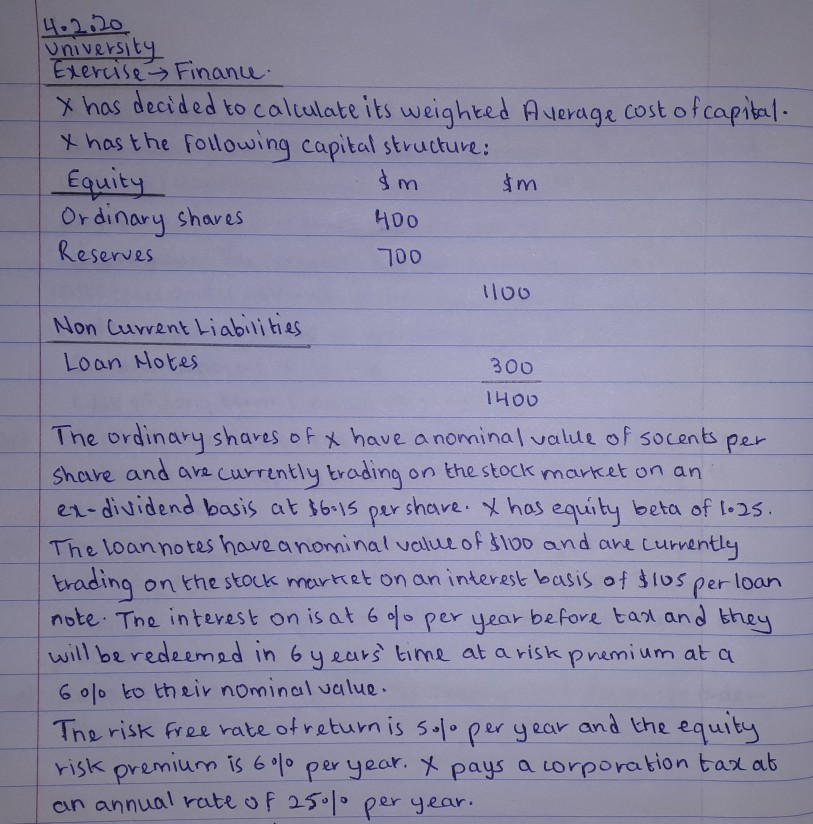 4.2.20
University
Exercise → Finance.
X has decided to calculate its weighted Average cost of capital.
X has the following capital structure:
Equity $m $m
Ordinary shares 400
Reserves 700
1100
Non Current Liabilities
Loan Notes 300
1400
The ordinary shares of X have a nominal value of 50cents per
share and are currently trading on the stock market on an
ex-dividend basis at $6.15 per share. X has equity beta of 1.25.
The loan notes have a nominal value of $100 and are currently
trading on the stock market on an interest basis of $105 per loan
note. The interest on is at 6% per year before tax and they
will be redeemed in 6 years' time at a risk premium at a
6% to their nominal value.
The risk free rate of return is 5% per year and the equity
risk premium is 6% per year. X pays a corporation tax at
an annual rate of 25% per year.